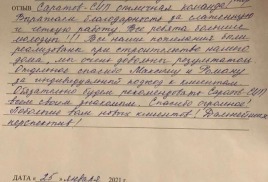 ОТЗЫВ Саратов-СИП отличная команда!
Выражаем благодарность за слаженную
и четкую работу. Все ребята большие
молодцы!!! Все наши пожелания были
реализованы при строительстве нашего
дома, мы очень довольны результатом.
Отдельное спасибо Максиму и Роману
за индивидуальный подход к клиентам.
Обязательно будем рекомендовать Саратов-СИП
всем своим знакомым. Спасибо огромное!
Побольше вам новых клиентов! Дальнейших
перспектив!
ДАТА « 25 » января 2021 г